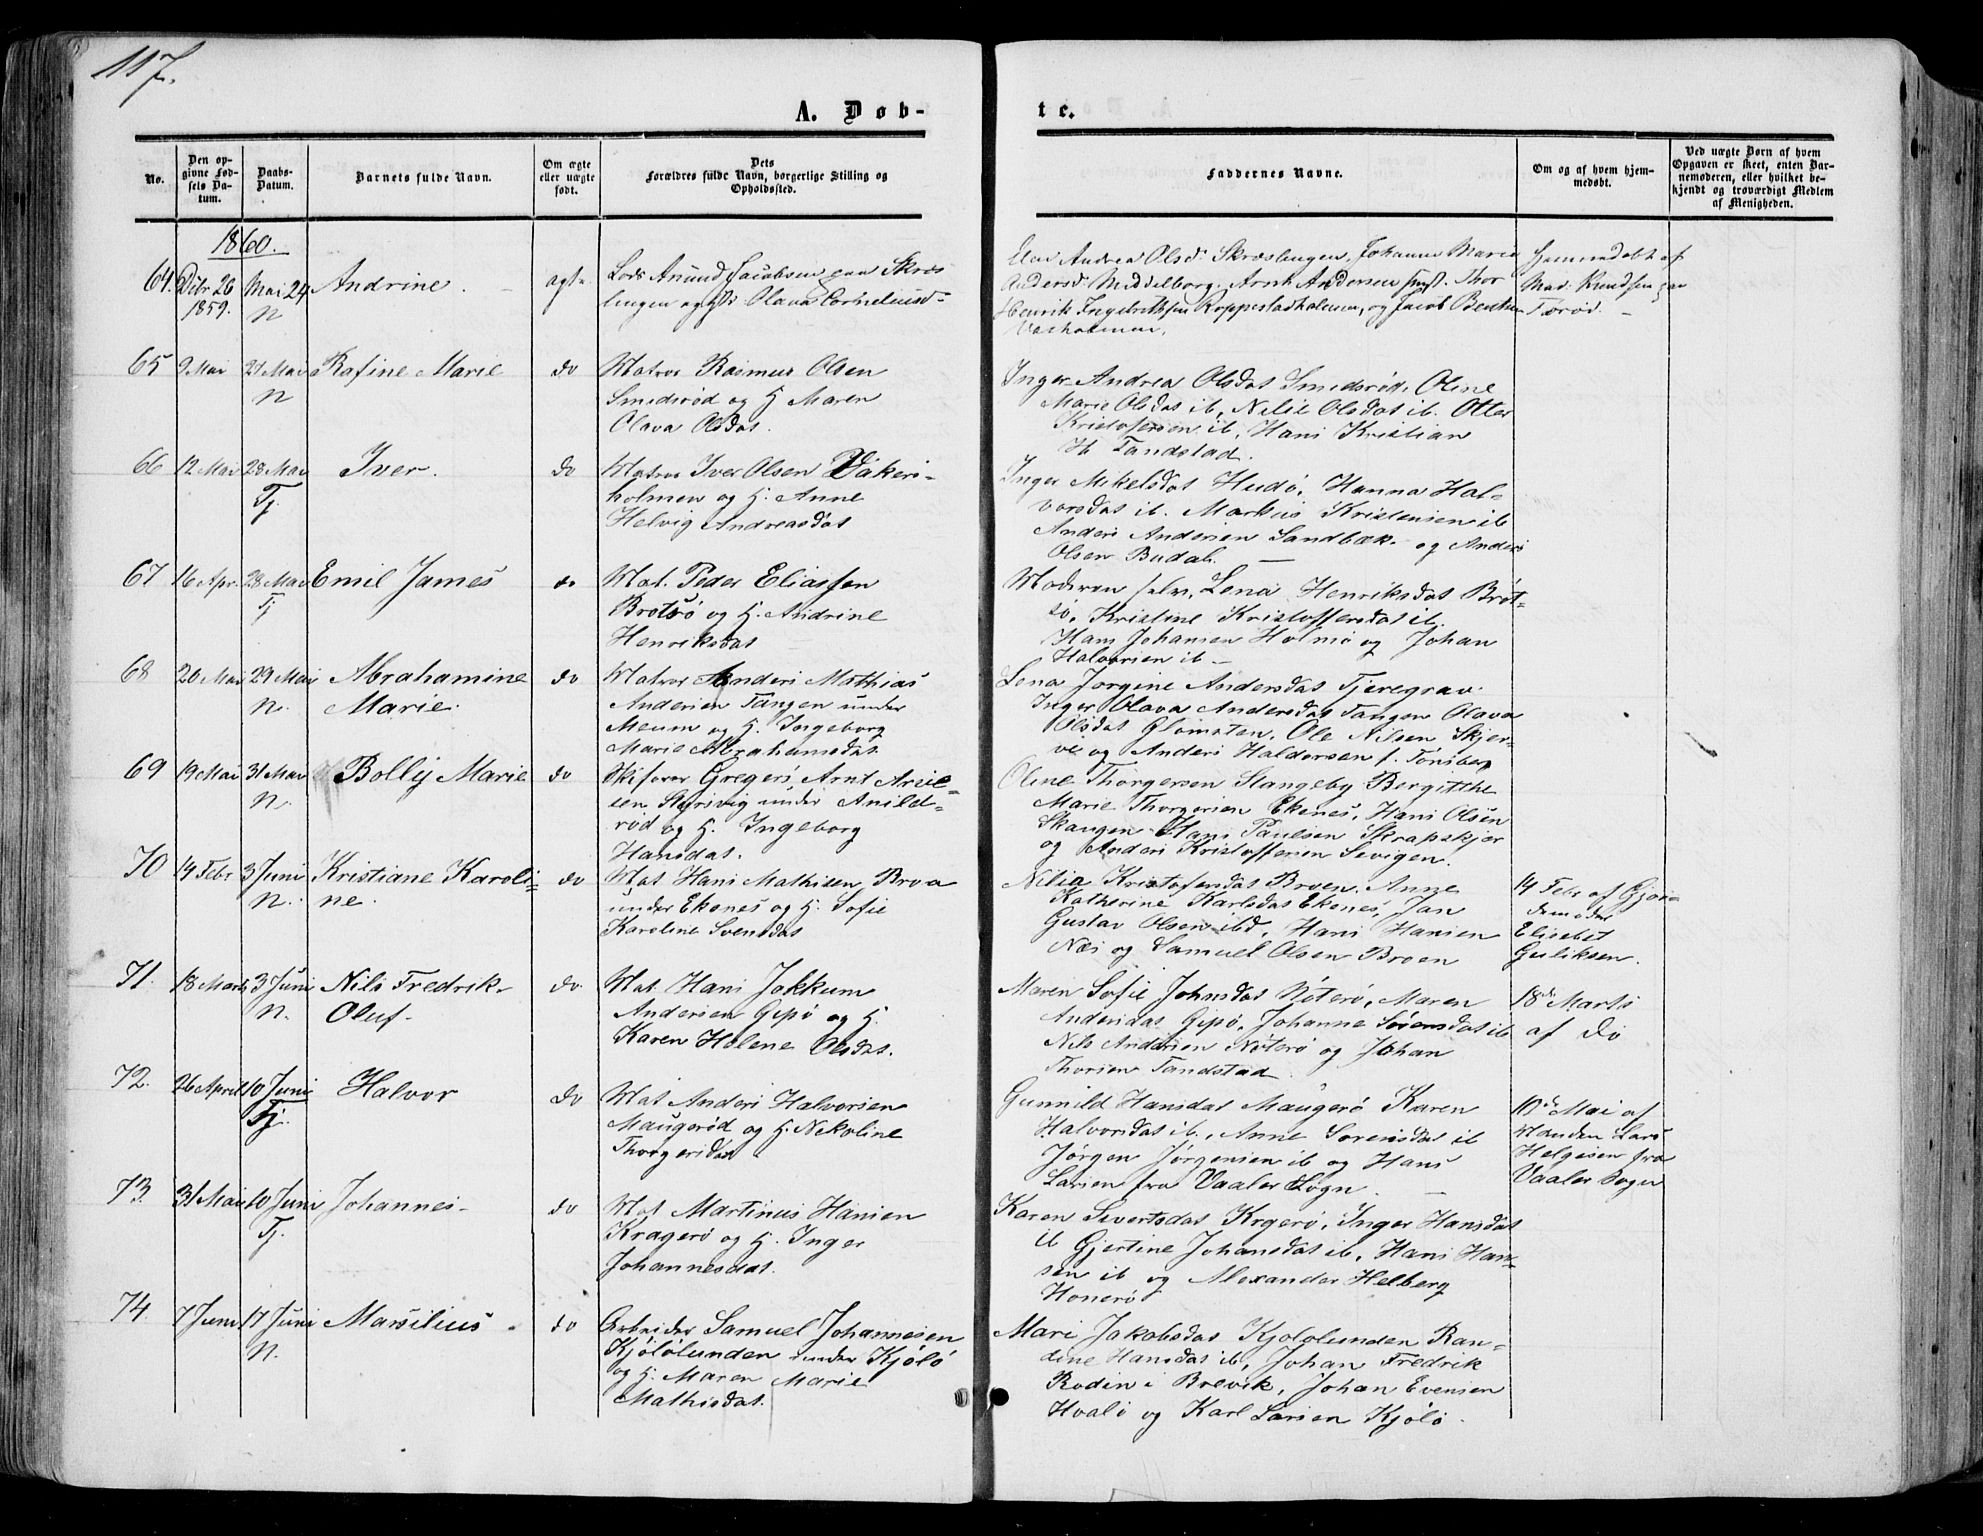 117.
A. Døb-
te.
No.
Den op-
givne Fød-
sels Da-
tum.
Daabs-
Datum.
Barnets fulde Navn.
Om ægte
eller uægte
født.
Dets
Forældres fulde Navn, borgerlige Stilling og
Opholdssted.
Faddernes Navne.
Om og af hvem hjem-
medøbt.
Ved uægte Børn af hvem
Opgaven er skeet, enten Bar-
nemoderen, eller hvilket be-
kjendt og troværdigt Medlem
af Menigheden.
1860.
64. Dcbr 26
1859.
Mai 24
N
Andrine.
ægte
Lods Anund Jacobsen paa Skræs
lingen og H: Olava Corneliusd
Elen Andrea Olsd: Skræslingen, Johanne Marie
Andersd: Meddelborg, Arnt Andersen sms. Thor
Henrik Ingebretsen Roppestadholmen, og Jacob Bentsen
Vasholmen.
Hjemmedøbt af
Mad: Knudsen paa
Færød.
65
9 Mai
27 Mai
N
Rafine Marie
do
Matros Rasmus Olsen
Smedsrød og H Maren
Olava Olsdat.
Inger Andrea Olsdat Smedsrød, Oline
Marie Olsdat ib, Nilie Olsdat ib. Otter
Kristofersen ib, Hans Kristian
H. Tandstad.
66
12 Mai
28 Mai
Tj.
Iver.
do
Matros Iver Olsen Vakers-
holmen og H. Anne
Helvig Andreasdat
Inger Mikelsdat Hudø, Hanna Hal-
vorsdat ib. Markus Kristensen ib
Anders Andersen Sandbæk og Anders
Olsen Budal.
67
16 Apr.
28 Mai
Tj
Emil James
do
Mat. Peder Eliassen
Brotsø og H. Andrine
Henriksdat
Moderen selv, Lena Henriksdat Brøt-
sø, Kristine Kristoffersdat ib.
Hans Johansen Holmsø og Johan
Halvorsen ib
68
20 Mai
29 Mai
N.
Abrahamine
Marie.
do
Matros Anders Mathias
Andersen Tangen under
Meum og H. Ingeborg
Marie Abrahamsdat.
Lena Jørgine Andersdat Tjeregrav.
Inger Olava Andersdat Tangen Olava
Olsdat Glomsten, Ole Nilsen Skjer-
ve og Anders Haldorsen f. Tønsberg
69
19 Mai
31 Mai
N.
Bolly Marie
do
Skifører Gregers Arnt Arve-
sen Sørvig under Anild-
rød og H. Ingeborg
Hansdat.
Oline Thorgersen Stangeby Bergitthe
Marie Thorgersen Ekenes, Hans Olsen
Skaugen Hans Paulsen Skrapskjer
og Anders Kristoffersen Sevigen.
70
14 Febr
3 Juni
N.
Kristiane Karoli-
ne.
do
Mat Hans Mathisen Broa
under Ekenes og H. Sofie
Karoline Svensdat
Nilia Kristofersdat Broen. Anne
Katherine Karlsdat Ekenes, Jan
Gustav Olsen ibd, Hans Hansen
Næs og Samuel Olsen Broen
14 Febr af Gjor-
demoder
Elisebet
Guliksen.
71.
18 Marts
3 Juni
N.
Nils Fredrik
Oluf
do.
Mat. Hans Jokkum
Andersen Gipø og H.
Karen Helene Olsdat.
Maren Sofie Johnsdat Nøterø, Maren
Andersdat Gipø, Johanne Sørensdat ib
Nils Andersen Nøterø og Johan
Thorsen Tandstad
18de Marts
af do
72.
26 April
10 Juni
Tj.
Halvor
do
Mat Anders Halvorsen
Maugerød og H. Nekoline
Thorgersdat
Gunnild Hansdat Maugerø Karen
Halvorsdat ib., Anne Sørensdat ib
Jørgen Jørgensen ib og Hans
Larsen fra Vaaler Sogn.
10de Mai af
Manden Lars
Helgesen fra
Vaaler Sogn
73.
31 Mai
10 Juni
Tj.
Johannes.
do
Mat Martinus Hansen
Kragerø og H. Inger
Johannesdat.
Karen Sivertsdat Krgerø, Inger Hansdat
ib Gjertine Johansdat ib, Hans Han-
sen ib og Alexander Helberg
Honerø
74.
7 Juni
17 Juni
N.
Marsilius
do
Arbeider Samuel Johannesen
Kjølølunden under Kjølø
og H. Maren Marie
Mathisdat.
Mari Jakobsdat Kjølølunden Ran-
dine Hansdat ib, Johan Fredrik
Rodin i Brevik, Johan Evensen
Hvalø og Karl Larsen Kjølø.